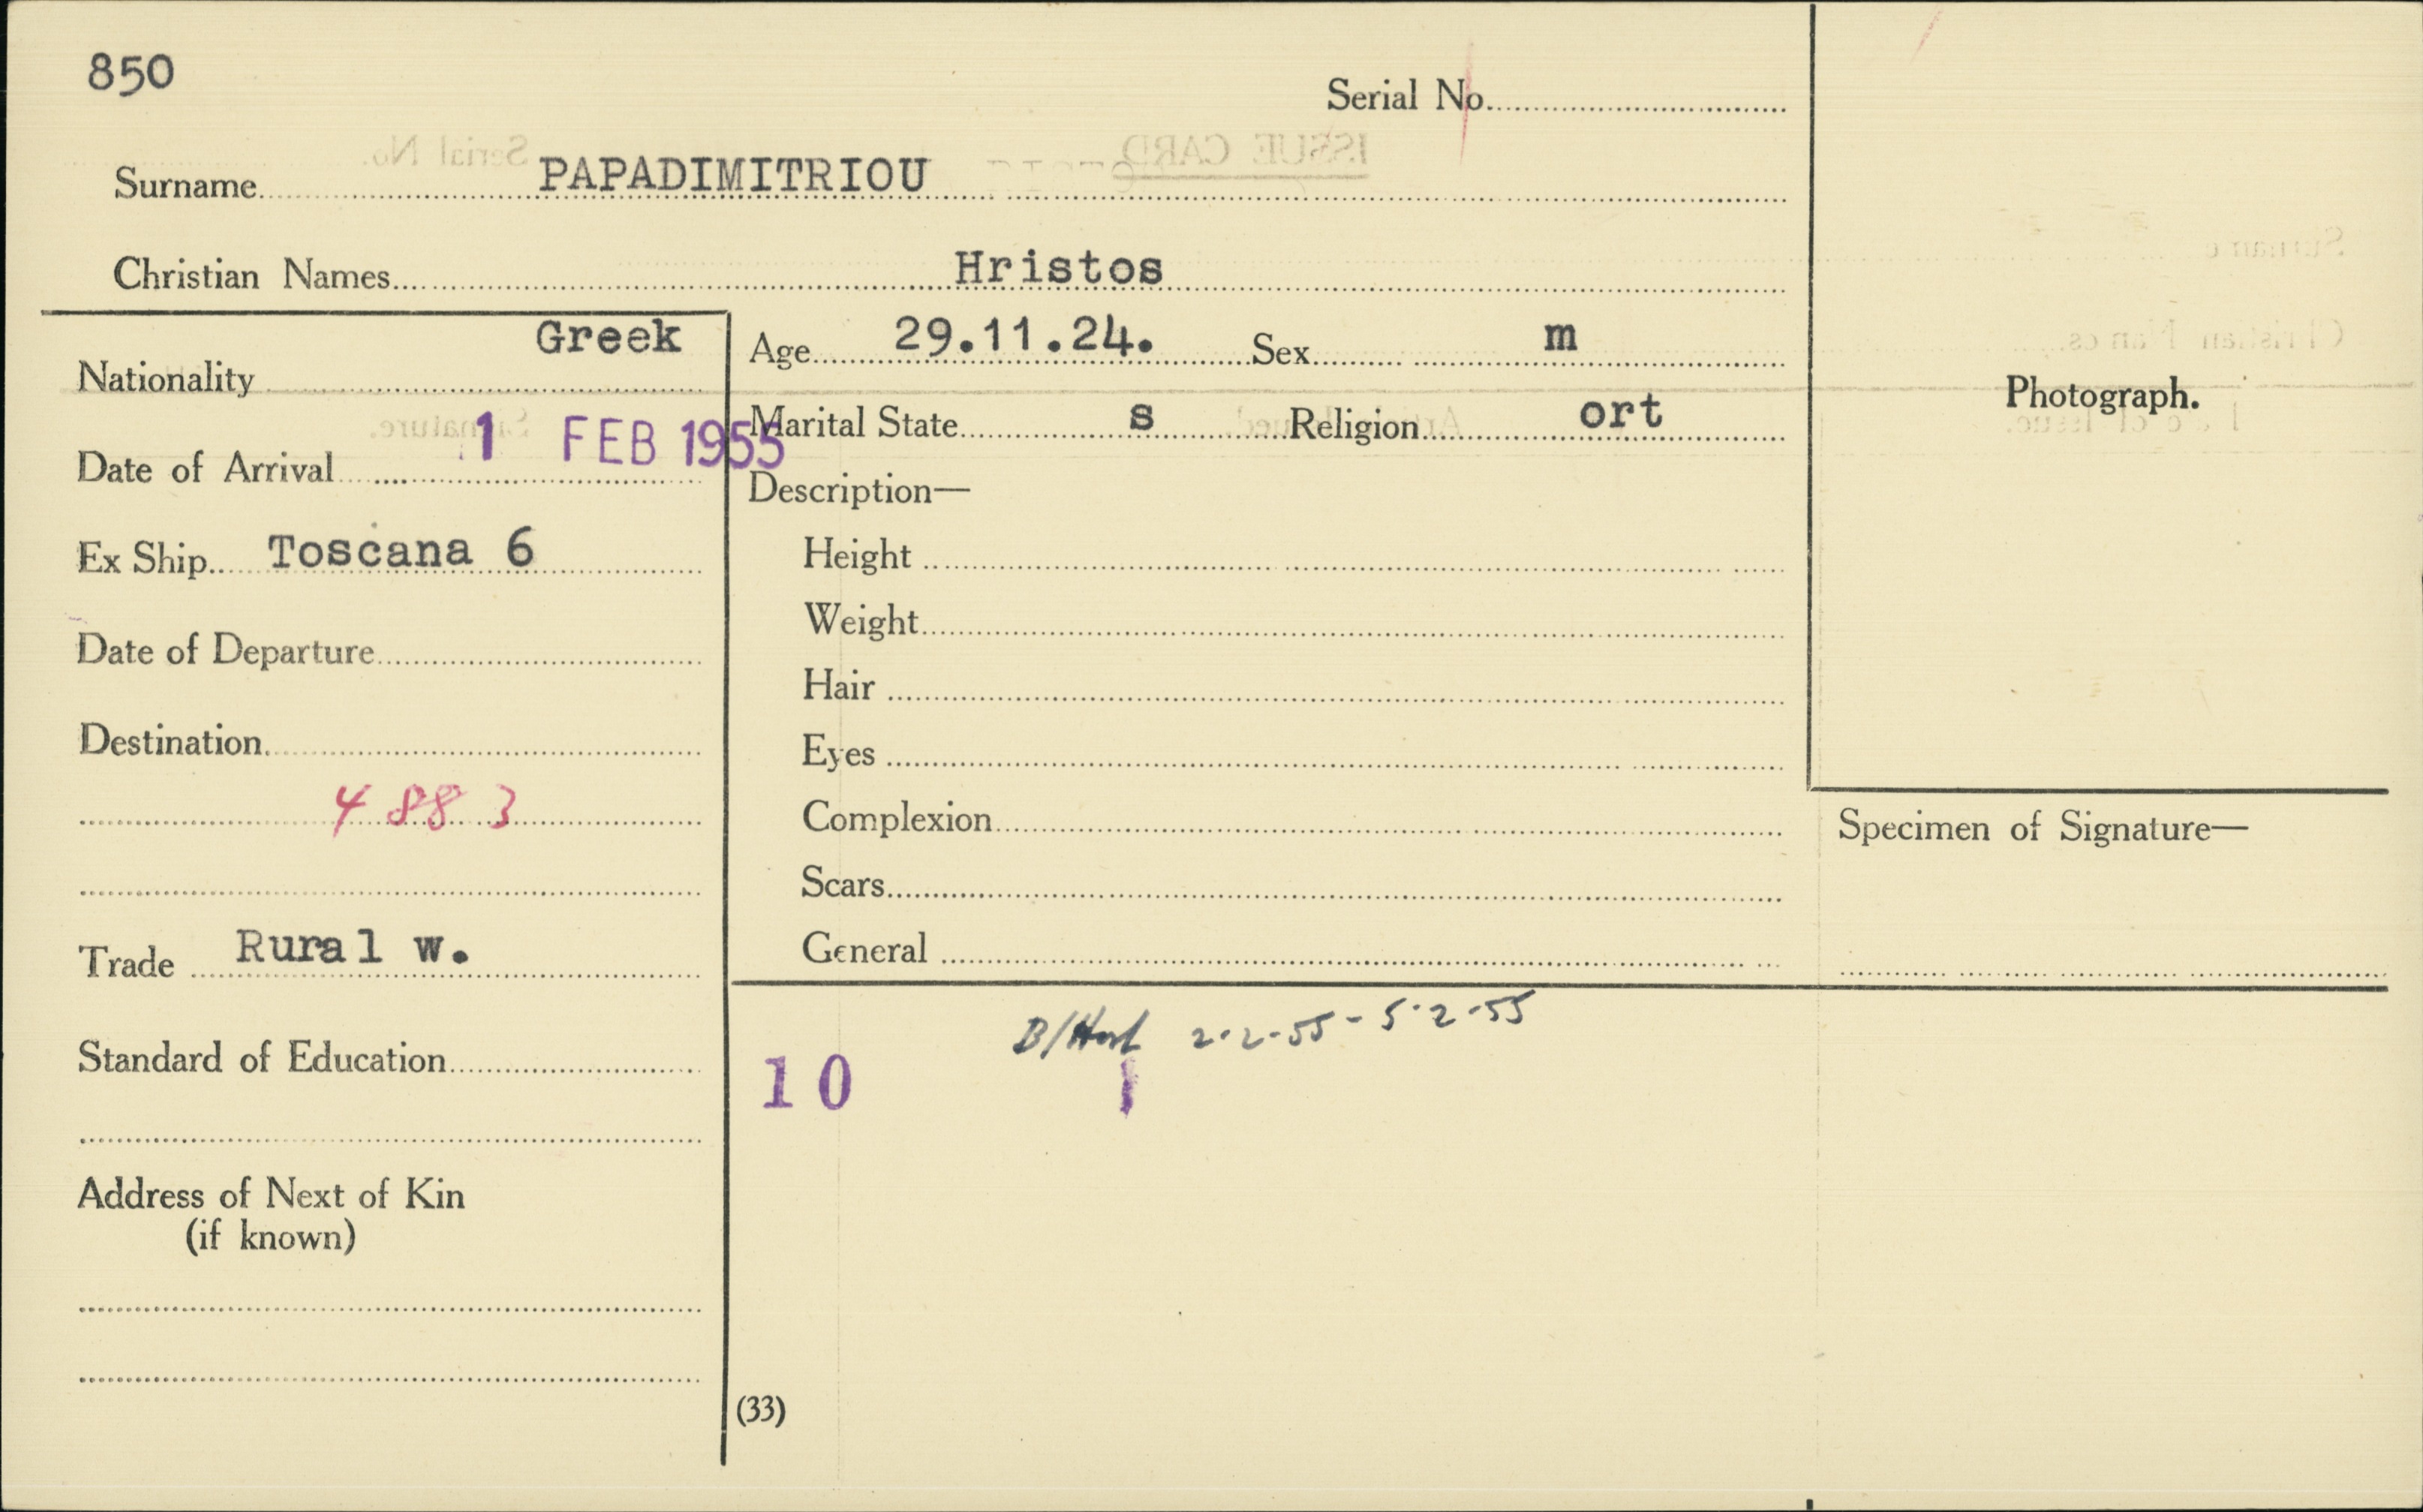 850
Serial No.
Surname PAPADIMITRIOU
Christian Names Hristos
Nationality Greek
Age 29.11.24. Sex m
Date of Arrival 1 FEB 1955
Marital State s Religion ort
Description—
Ex Ship Toscana 6
Height
Weight
Date of Departure
Hair
Destination
Eyes
4883
Complexion
Scars
Trade Rural w.
General
Photograph.
Specimen of Signature—
B/Host 2.2.55 - 5.2.55
Standard of Education
10 1
Address of Next of Kin
(if known)
(33)
ISSUE CARD
Serial No.
Surname
Christian Names
Signature.
Date of Issue.